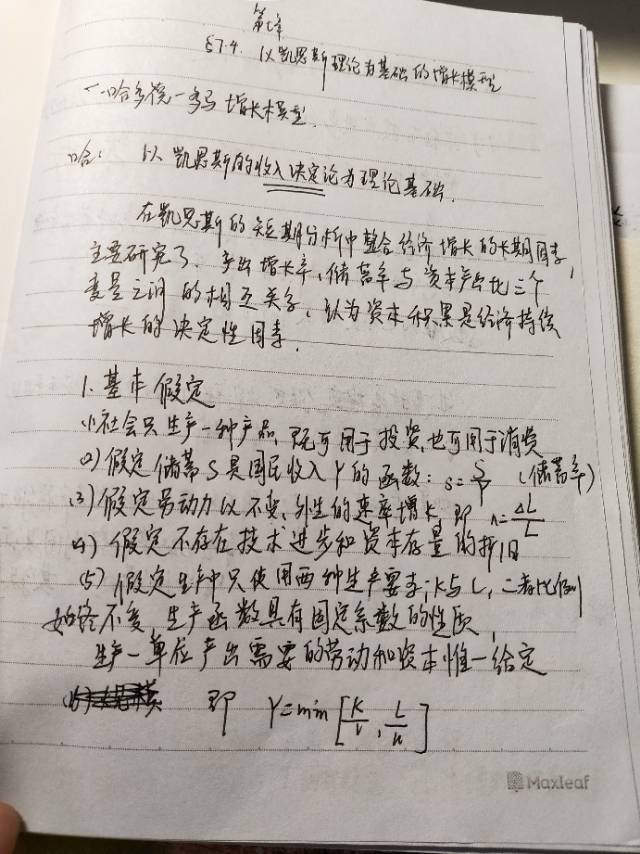 第七章
§7.4. 以凯恩斯理论为基础的增长模型
一、哈多德—多马 增长模型.
哈: 以凯恩斯的收入决定论为理论基础.
在凯恩斯的短期分析中整合经济增长的长期因素,
主要研究了. 产出增长率, 储蓄率与资本产出比三个
变量之间的相互关系, 认为资本积累是经济持续
增长的决定性因素.
1. 基本假定
(1)社会只生产一种产品, 既可用于投资, 也可用于消费
(2) 假定储蓄S是国民收入Y的函数: s=S/Y (储蓄率)
(3) 假定劳动力以不变、外生的速率增长, 即 n=ΔL/L
(4) 假定不存在技术进步和资本存量的折旧
(5) 假定生产中只使用两种生产要素: K与L, 二者比例
始终不变, 生产函数具有固定系数的性质,
生产一单位产出需要的劳动和资本惟一给定
即 Y=min[K/v, L/u]
Maxleaf